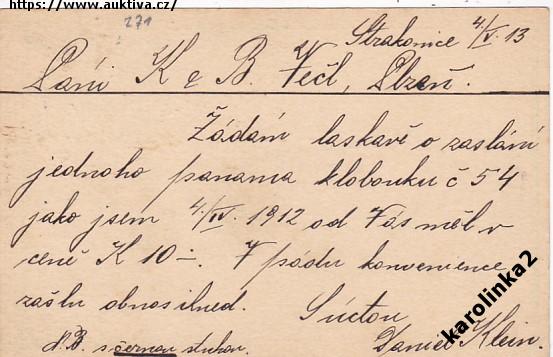 https://www.auktiva.cz/
271
Strakonice 4/V. 13
Páni K & B. Večl, Plzeň.
Žádám laskavě o zaslání
jednoho panama klobouku č 54
jako jsem 4./IV. 1912 od Vás měl v
ceně K 10-. V pádu konvenience
zašlu obnos ihned. Súctou
N.B. s černou stuhou. Daniel Klein.
karolinka2